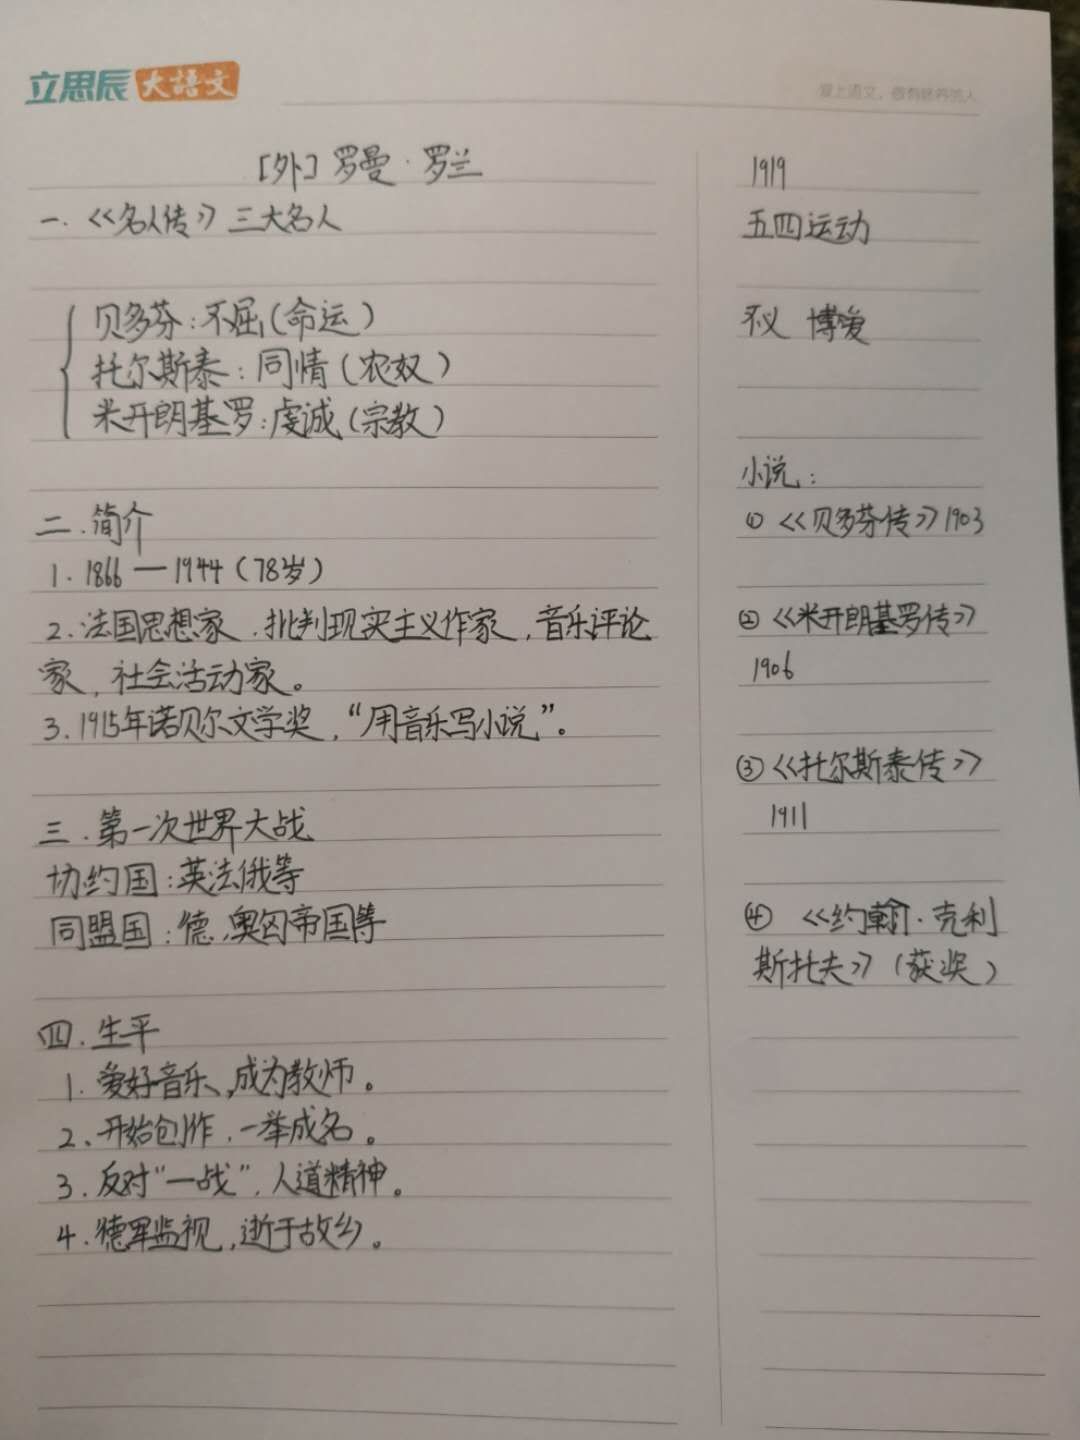 立思辰大語文
[外] 罗曼·罗兰
一.《名人传》三大名人
贝多芬:不屈(命运)
托尔斯泰:同情(农奴)
米开朗基罗:虔诚(宗教)
二.简介
1. 1866—1944(78岁)
2.法国思想家.批判现实主义作家,音乐评论
家,社会活动家。
3. 1915年诺贝尔文学奖,“用音乐写小说”。
三.第一次世界大战
协约国:英法俄等
同盟国:德,奥匈帝国等
四.生平
1.爱好音乐,成为教师。
2、开始创作,一举成名。
3.反对“一战”,人道精神。
4.德军监视,逝于故乡。
1919
五四运动
博爱
小说:
① 《贝多芬传》1903
②《米开朗基罗传》
1906
③《托尔斯泰传》
1911
④ 《约翰·克利
斯托夫》(获奖)